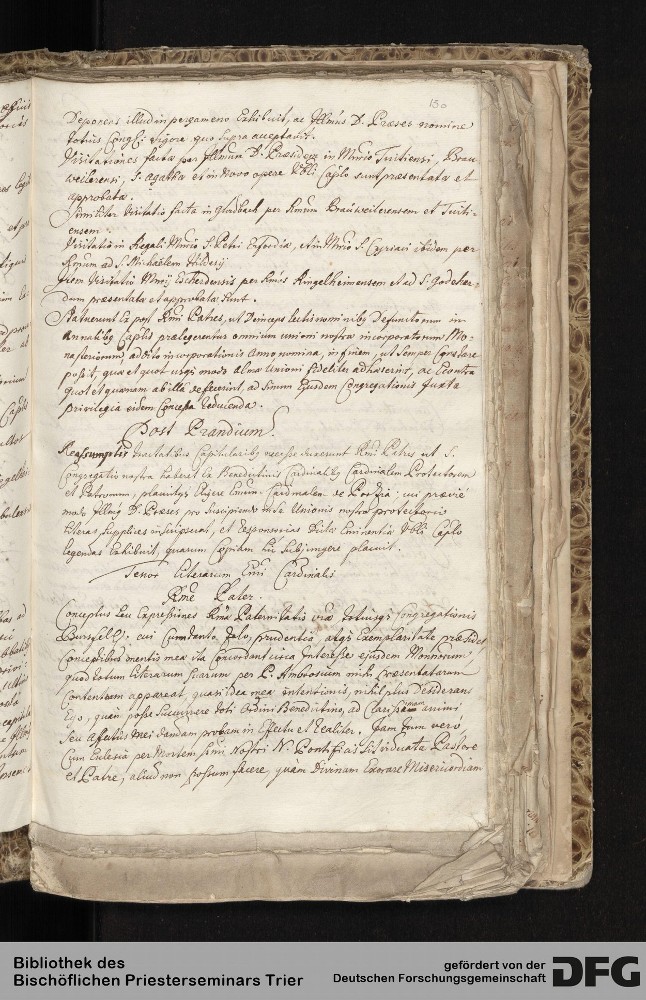 130
Deponens illud in pergameno Exhibuit, ac Illmus D. Præses nomine
totius Congñis vigore, quo supra acceptavit.
Visitationes factæ per Illmum D. Præsidem in Mnrio Tuitiensi, Brau-
weilerensi, S. Agathæ et in Novo opere Vbli Caplo sunt præsentatæ et
approbatæ.
Similiter Visitatio facta in Gladbach per Rmum Brauweilerensem et Tuiti-
ensem.
Visitatio in Regali Mnrio S. Petri Erfordiæ, et in Mnrio S. Cyriaci ibidem per
Rmum ad S. Michaëlem Hildesij
Item Visitatio Mnrij Escherdensis per Rmos Ringelheimensem et ad S. Godehar-
dum præsentata et approbata sunt.
Statuerunt Ex post Rmi Patres, ut Deinceps lectis nominibus Defunctorum in
Annalibus Caplis prælegerentur omnium unioni nostræ incorporatorum Mo-
nasteriorum, addito incorporationis Anno, nomina, in finem, ut Semper Constare
possit, quæ et quot usque modo almæ Unioni fideliter adhæserint, ac Econtra
quot et quænam ab illa defecerint, ad sinum Ejusdem Congregationis Juxta
privilegia eidem Concessa reducenda.
Post Prandium.
Reassumptis tractatibus Capitularibus necesse duxerunt Rmi Patres ut S.
Congregatio nostra haberet Ex Benedictinis Cardinalibus Cardinalem Protectorem
et Patronum, placuitque Eligere Emum Cardinalem de Portia; cui prævie
modo Illmus D. Præses pro suscipiendo Unionis nostræ protectorio
literas supplices inscripserat, et responsorias Dictæ Eminentiæ Vbli Caplo
legendas Exhibuit, quarum Copiam hic Subjungere placuit.
Tenor Literarum Emi Cardinalis
Rme Pater.
Conceptus seu Expressiones Rmæ Paternitatis væ totiusque Congregationis
Bursfel: cui Cum tanto Zelo, prudentia, atque Exemplaritate præsidet
Conceptibus mentis meæ ita Concordant circa Interesse ejusdem Monachorum,
quod totum literarum suarum per P. Ambrosium mihi præsentatarum
Contentum appareat, quasi idea meæ intentionis, nihil plus Desiderans
Ego, quàm posse succurrere toti Ordini Benedictino, ad Clarissimam animi
seu affectus mei demum probam in Effectu et realiter. Jam tum verò
Cum Ecclesia per Mortem smi Nostri N. Pontificis sit viduata Pastore
et Patre, aliud non possum facere, quàm Divinam Exorare Misericordiam
Bibliothek des
Bischöflichen Priesterseminars Trier
gefördert von der
Deutschen Forschungsgemeinschaft
DFG